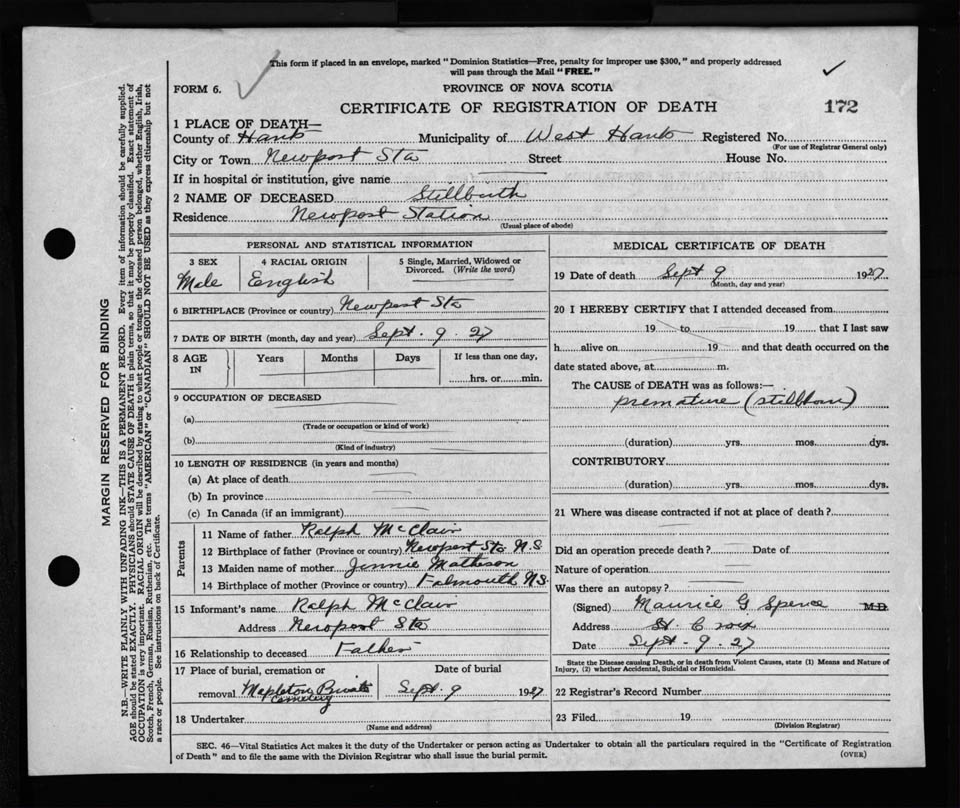 This form if placed in an envelope, marked "Dominion Statistics—Free, penalty for improper use $300," and properly addressed
will pass through the Mail "FREE."
FORM 6.
PROVINCE OF NOVA SCOTIA
CERTIFICATE OF REGISTRATION OF DEATH
172
1 PLACE OF DEATH—
County of Hants Municipality of West Hants Registered No.
(For use of Registrar General only)
City or Town Newport Sta Street House No.
If in hospital or institution, give name
2 NAME OF DECEASED Stillbirth
Residence Newport Station
(Usual place of abode)
PERSONAL AND STATISTICAL INFORMATION
3 SEX
Male
4 RACIAL ORIGIN
English
5 Single, Married, Widowed or
Divorced. (Write the word)
6 BIRTHPLACE (Province or country) Newport Sta
7 DATE OF BIRTH (month, day and year) Sept. 9. 27
8 AGE IN
Years Months Days If less than one day,
hrs. or min.
9 OCCUPATION OF DECEASED
(a)
(Trade or occupation or kind of work)
(b)
(Kind of industry)
10 LENGTH OF RESIDENCE (in years and months)
(a) At place of death
(b) In province
(c) In Canada (if an immigrant)
Parents
11 Name of father Ralph McClair
12 Birthplace of father (Province or country) Newport Sta N.S.
13 Maiden name of mother Jennie Matheson
14 Birthplace of mother (Province or country) Falmouth N.S.
15 Informant's name Ralph McClair
Address Newport Sta
16 Relationship to deceased Father
17 Place of burial, cremation or Date of burial
removal Mapleton Private Sept 9 1927
Cemetery
18 Undertaker
(Name and address)
MEDICAL CERTIFICATE OF DEATH
19 Date of death Sept 9 1927
(Month, day and year)
20 I HEREBY CERTIFY that I attended deceased from
19 to 19 that I last saw
h alive on 19 and that death occurred on the
date stated above, at m.
The CAUSE of DEATH was as follows:—
premature (stillborn)
(duration) yrs. mos. dys.
CONTRIBUTORY
(duration) yrs. mos. dys.
21 Where was disease contracted if not at place of death?
Did an operation precede death? Date of
Nature of operation
Was there an autopsy?
(Signed) Maurice G Spence M.D.
Address St. Croix
Date Sept. 9. 27
State the Disease causing Death, or in death from Violent Causes, state (1) Means and Nature of
Injury, (2) whether Accidental, Suicidal or Homicidal.
22 Registrar's Record Number
23 Filed 19
(Division Registrar)
SEC. 46—Vital Statistics Act makes it the duty of the Undertaker or person acting as Undertaker to obtain all the particulars required in the "Certificate of Registration
of Death" and to file the same with the Division Registrar who shall issue the burial permit.
(OVER)
MARGIN RESERVED FOR BINDING
N.B.—WRITE PLAINLY WITH UNFADING INK—THIS IS A PERMANENT RECORD. Every item of information should be carefully supplied.
AGE should be stated EXACTLY. PHYSICIANS should STATE CAUSE OF DEATH in plain terms, so that it may be properly classified. Exact statement of
OCCUPATION is very important. RACIAL ORIGIN will be described by stating to what people or tongue the deceased person belonged, whether English, Irish,
Scotch, French, German, Russian, Ruthenian, etc. The terms "AMERICAN" or "CANADIAN" SHOULD NOT BE USED as they express citizenship but not
a race or people. See instructions on back of Certificate.